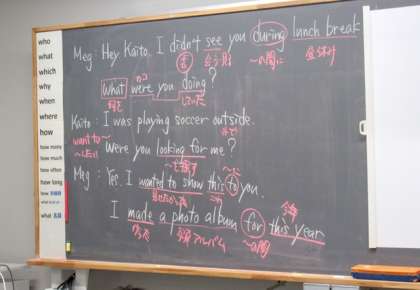 who
what
which
why
when
where
how
how many
how much
how often
how long
Meg : Hey Kaito, I didn't see you during lunch break
会う・見
〜の間に
what were you doing?
何を
していた
Kaito : I was playing soccer outside.
外で
want to〜
〜したい
Were you looking for me?
〜を探す
Meg : Yes. I wanted to show this to you.
I made a photo album for this year
今年
写真アルバム
〜の間